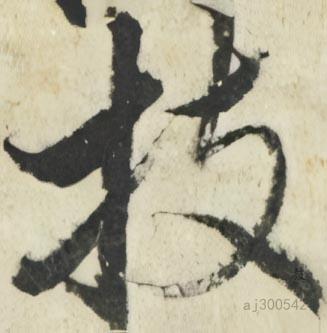 技
aj300542